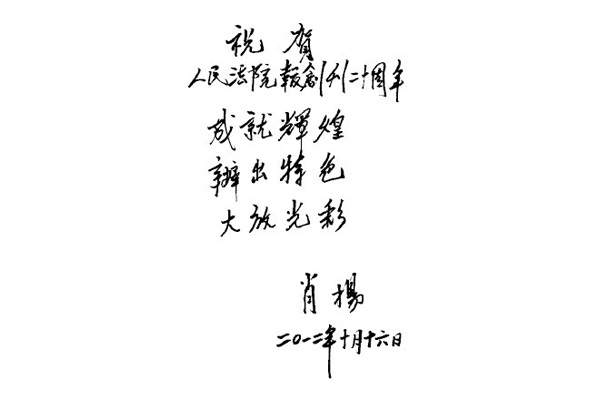 祝賀
人民法院報創刊二十周年
成就輝煌
辦出特色
大放光彩
肖揚
二〇一二年十月十六日